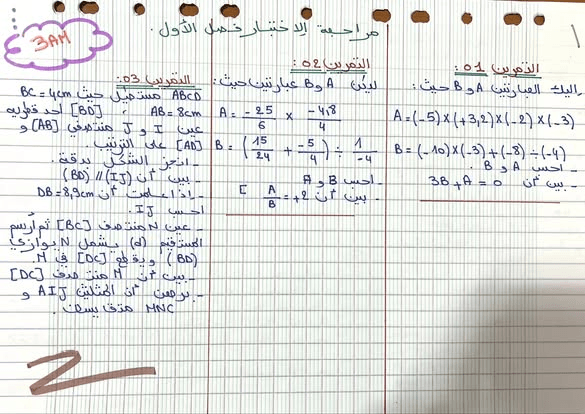 3AM
مراجعة الاختبار فصل الأول.
التمرين 01:
إليك العبارتين A و B حيث:
A = (-5) × (+3,2) × (-2) × (-3)
B = (-10) × (-3) + (-8) ÷ (-4)
- احسب A و B
- بين أن 3B + A = 0
التمرين 02:
لدينا A و B عبارتين حيث:
A = -25/6 × -4,8/4
B = (15/24 + -5/4) ÷ 1/-4
- احسب A و B
- بين أن A/B = +2
التمرين 03:
ABCD مستطيل حيث BC = 4cm
AB = 8cm ، [BD] أحد قطريه
عين I و J منتصفي [AB] و
[AD] على الترتيب.
- انجز الشكل بدقة.
- بين أن (IJ) // (BD)
- إذا علمت أن DB = 8,9cm
احسب IJ.
- عين N منتصف [BC] ثم أرسم
المستقيم (d) يشمل N يوازي
(BD) ويقطع [DC] في M.
- بين أن M منتصف [DC]
- برهن أن المثلثين AIJ و
MNC متقايسان.